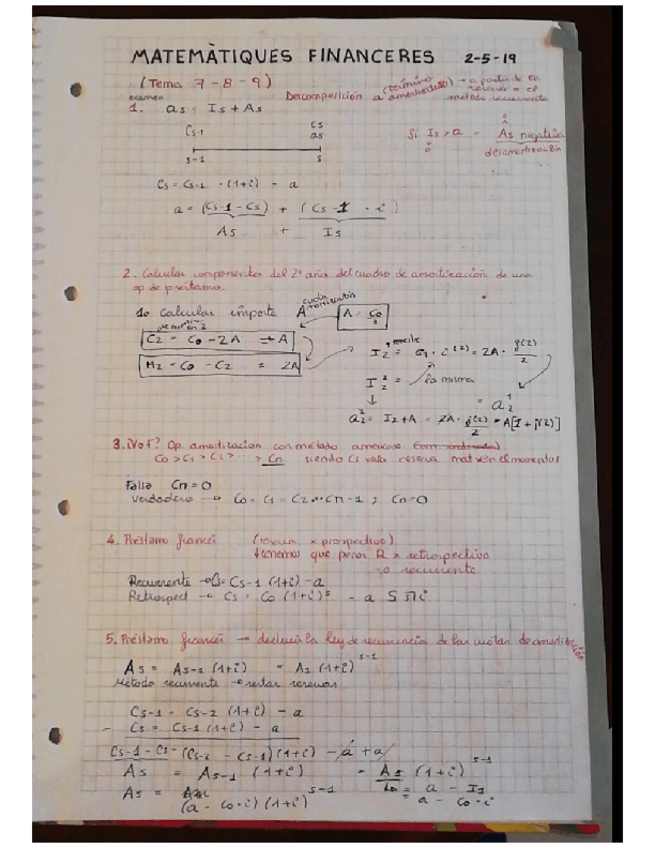 MATEMÀTIQUES FINANCERES 2-5-19
(Tema 7-8-9)
examen
Descomposición a (término amortizativo) → a partir de la reserva x el método recurrente
1. as = Is + As
Cs-1 Cs as
s-1 s
Si Is > a = As negativa
desamortización
Cs = Cs-1 · (1+i) - a
a = (Cs-1 - Cs) + (Cs-1 · i)
As + Is
2. Calcular componentes del 2º año del cuadro de amortización de una
op de préstamo.
1o Calcular importe A cuota amortización A = Co
C2 = Co - 2A = A
M2 = Co - C2 = 2A
la misma
a = I2 + A = 2A · j(2)/2 = A[1 + j(2)]
3. ¿V o F? Op. amortización con método americano
Co > C1 > C2 > ... > Cn siendo Cs valor reserva mat en el momento s
Falso Cn = 0
Verdadero → Co = C1 = C2 ... Cn-1 ; Cn = 0
4. Préstamo francés (reserva x prospectivo)
tenemos que pasar R x retrospectivo
o recurrente
Recurrente → Cs = Cs-1 (1+i) - a
Retrospect → Cs = Co (1+i)s - a S s̅ i
5. Préstamo francés → deducir la ley de recurrencia de las cuotas de amortización
As = As-1 (1+i) = A1 (1+i) s-1
Método recurrente → restar reservas
Cs-1 = Cs-2 (1+i) - a
- Cs = Cs-1 (1+i) - a
Cs-1 - Cs = (Cs-2 - Cs-1)(1+i) - a + a
As = As-1 (1+i) = A1 (1+i) s-1
As = (a - Co·i) (1+i) s-1
= a - I1
a - Co·i